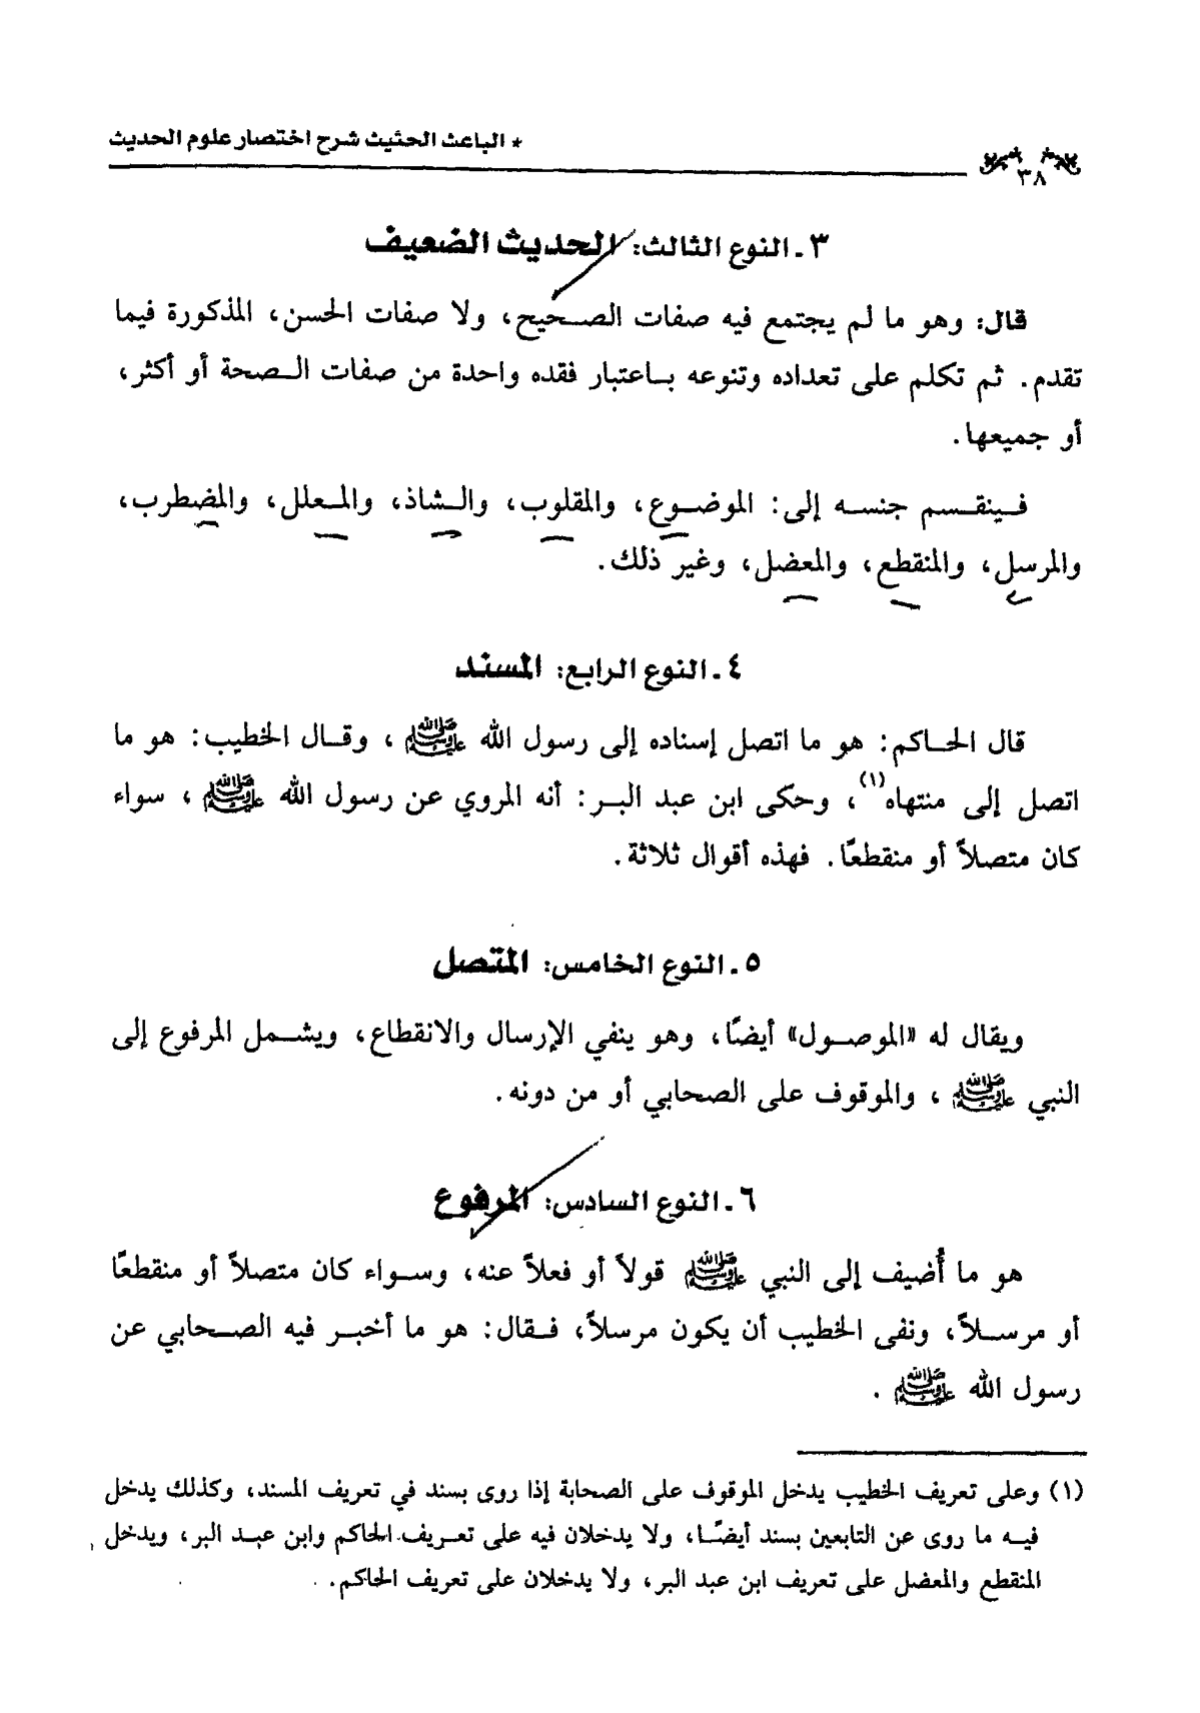 * الباعث الحثيث شرح اختصار علوم الحديث
٣٨
٣ ـ النوع الثالث: الحديث الضعيف
قال: وهو ما لم يجتمع فيه صفات الصحيح، ولا صفات الحسن، المذكورة فيما
تقدم. ثم تكلم على تعداده وتنوعه باعتبار فقده واحدة من صفات الصحة أو أكثر،
أو جميعها.
فينقسم جنسه إلى: الموضوع، والمقلوب، والشاذ، والمعلل، والمضطرب،
والمرسل، والمنقطع، والمعضل، وغير ذلك.
٤ ـ النوع الرابع: المسند
قال الحاكم: هو ما اتصل إسناده إلى رسول الله ﷺ ، وقال الخطيب: هو ما
اتصل إلى منتهاه(١)، وحكى ابن عبد البر: أنه المروي عن رسول الله ﷺ ، سواء
كان متصلاً أو منقطعًا. فهذه أقوال ثلاثة.
٥ ـ النوع الخامس: المتصل
ويقال له «الموصول» أيضًا، وهو ينفي الإرسال والانقطاع، ويشمل المرفوع إلى
النبي ﷺ ، والموقوف على الصحابي أو من دونه.
٦ ـ النوع السادس: المرفوع
هو ما أُضيف إلى النبي ﷺ قولاً أو فعلاً عنه، وسواء كان متصلاً أو منقطعًا
أو مرسلاً، ونفى الخطيب أن يكون مرسلاً، فقال: هو ما أخبر فيه الصحابي عن
رسول الله ﷺ .
(١) وعلى تعريف الخطيب يدخل الموقوف على الصحابة إذا روى بسند في تعريف المسند، وكذلك يدخل
فيه ما روى عن التابعين بسند أيضًا، ولا يدخلان فيه على تعريف الحاكم وابن عبد البر، ويدخل
المنقطع والمعضل على تعريف ابن عبد البر، ولا يدخلان على تعريف الحاكم.